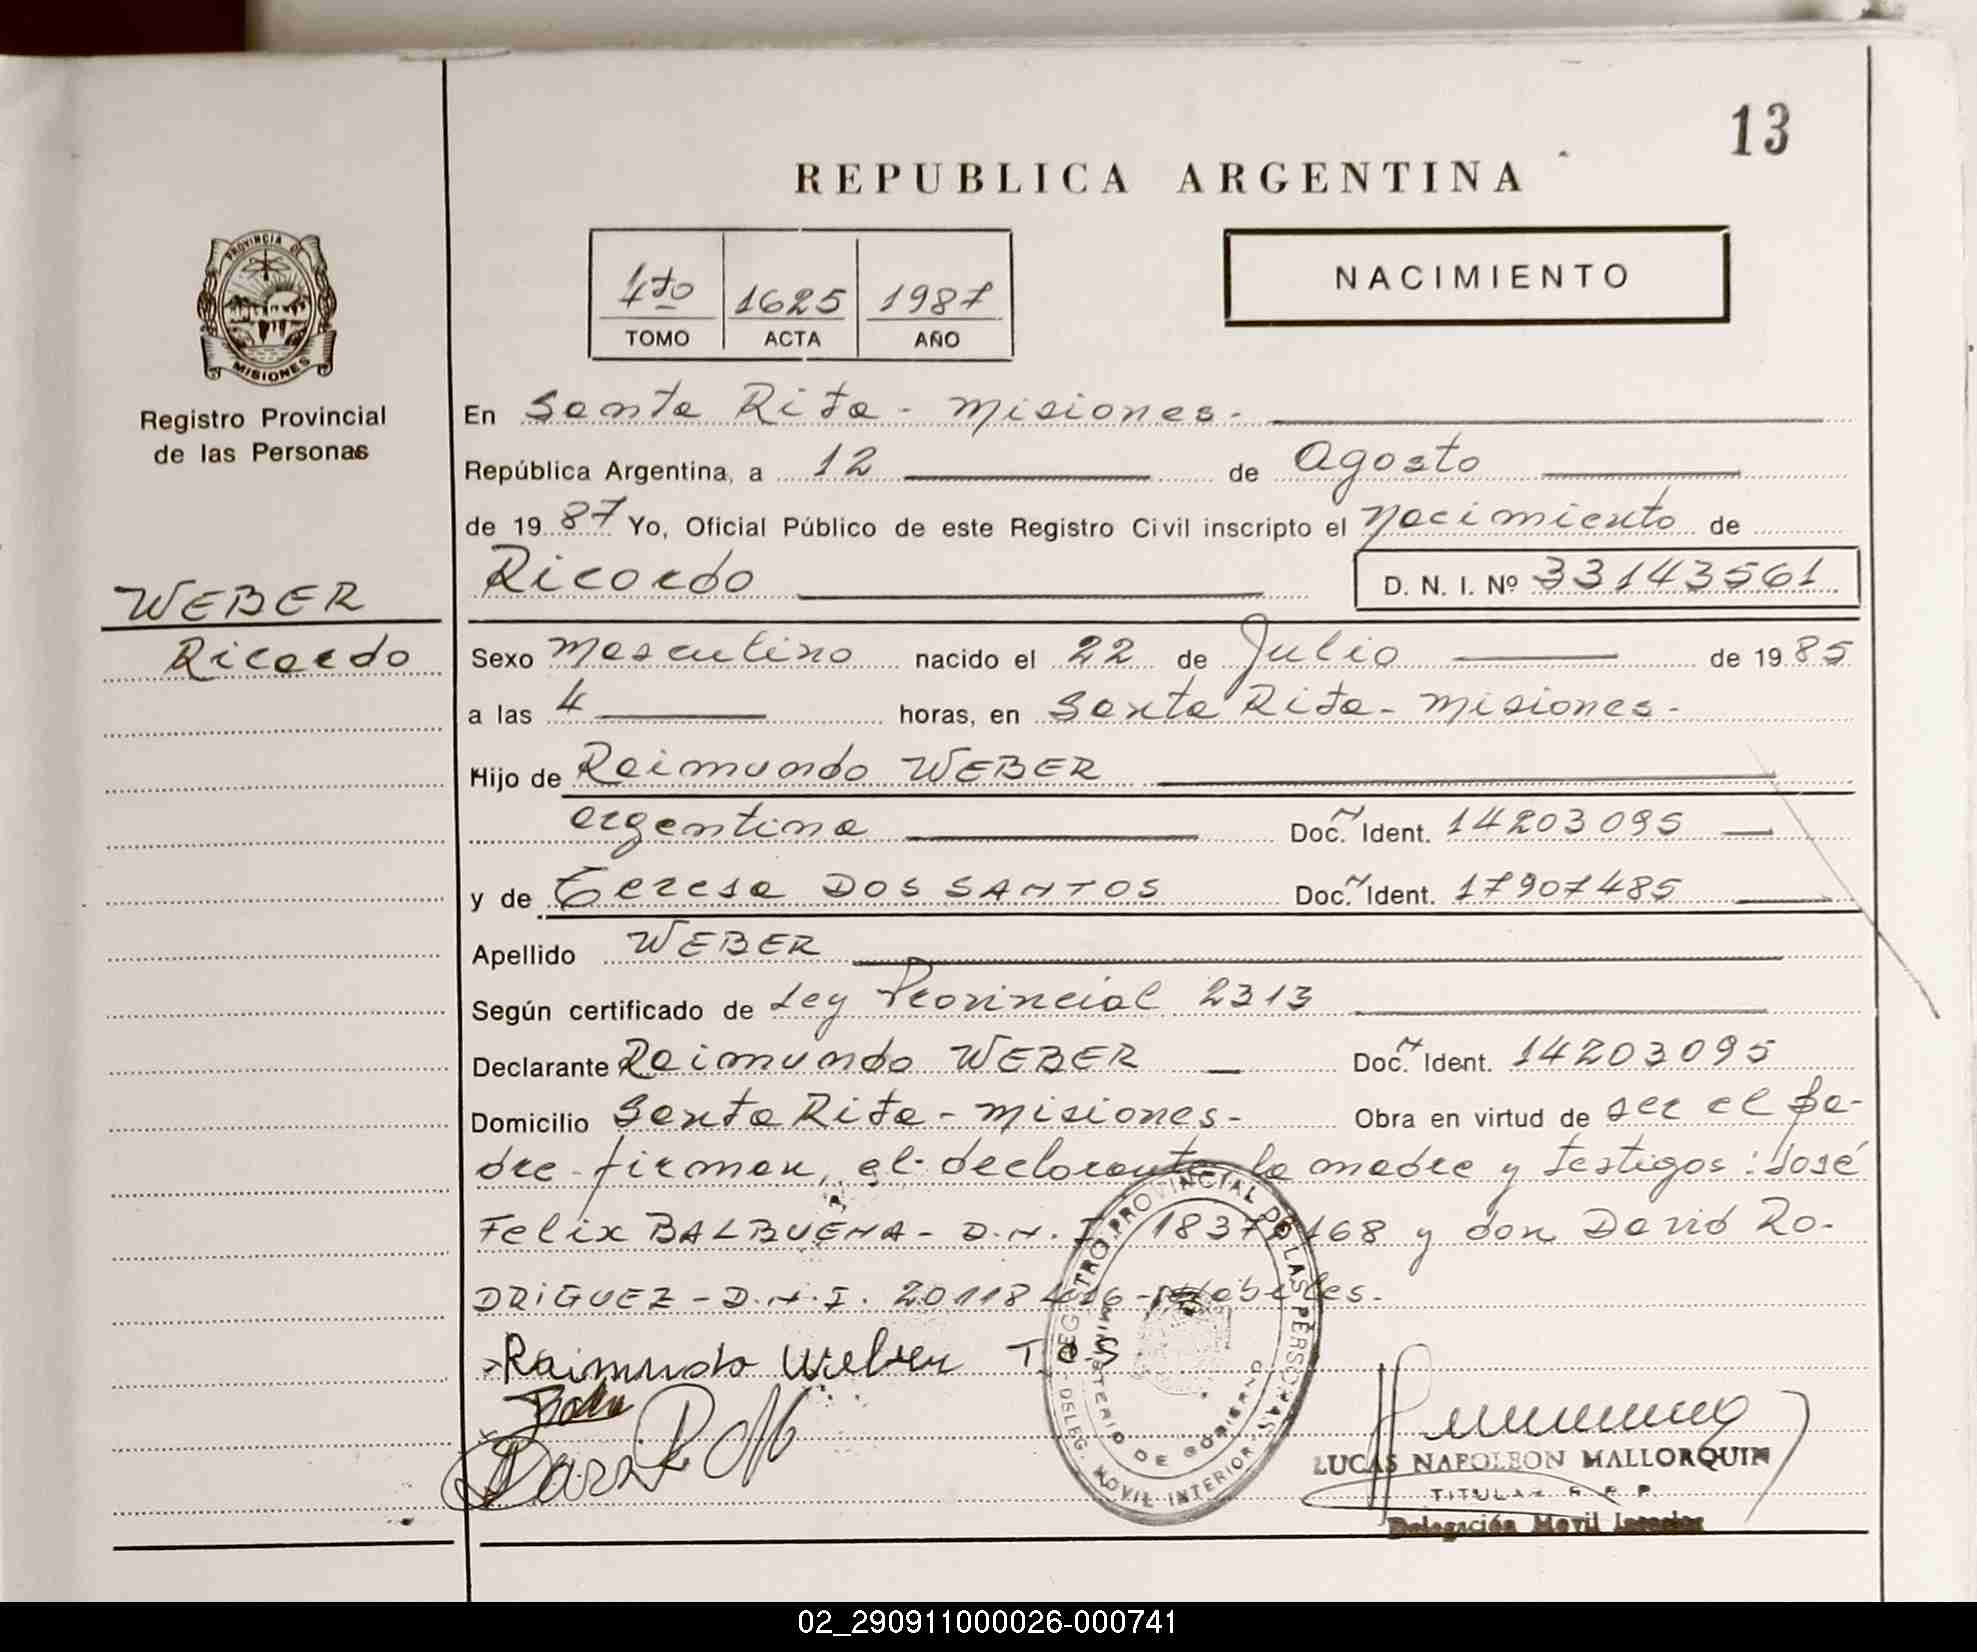 13
REPUBLICA ARGENTINA
NACIMIENTO
4to 1625 1987
TOMO ACTA AÑO
PROVINCIA DE
MISIONES
Registro Provincial
de las Personas
En Santa Rita - Misiones -
República Argentina, a 12 de Agosto
de 1987 Yo, Oficial Público de este Registro Civil inscripto el Nacimiento de
Ricardo D. N. I. Nº 33143561
WEBER
Ricardo
Sexo Masculino nacido el 22 de Julio de 1985
a las 4 horas, en Santa Rita - Misiones -
Hijo de Raimundo WEBER
argentina Doc. N Ident. 14203095
y de Teresa DOS SANTOS Doc. N Ident. 17907485
Apellido WEBER
Según certificado de Ley Provincial 2313
Declarante Raimundo WEBER Doc. N Ident. 14203095
Domicilio Santa Rita - Misiones - Obra en virtud de ser el pa-
dre - firman, el declarante, la madre y testigos: José
Felix BALBUENA - D.N.I. 168 y don David RO-
DRIGUEZ - D.N.I. 20118416 -
Raimundo Weber T. D S
REGISTRO PROVINCIAL DE LAS PERSONAS
MINISTERIO DE GOBIERNO
DELEG. MOVIL INTERIOR
LUCAS NAPOLEON MALLORQUIN
TITULAR R. P. P.
Delegación Movil Interior
02_290911000026-000741